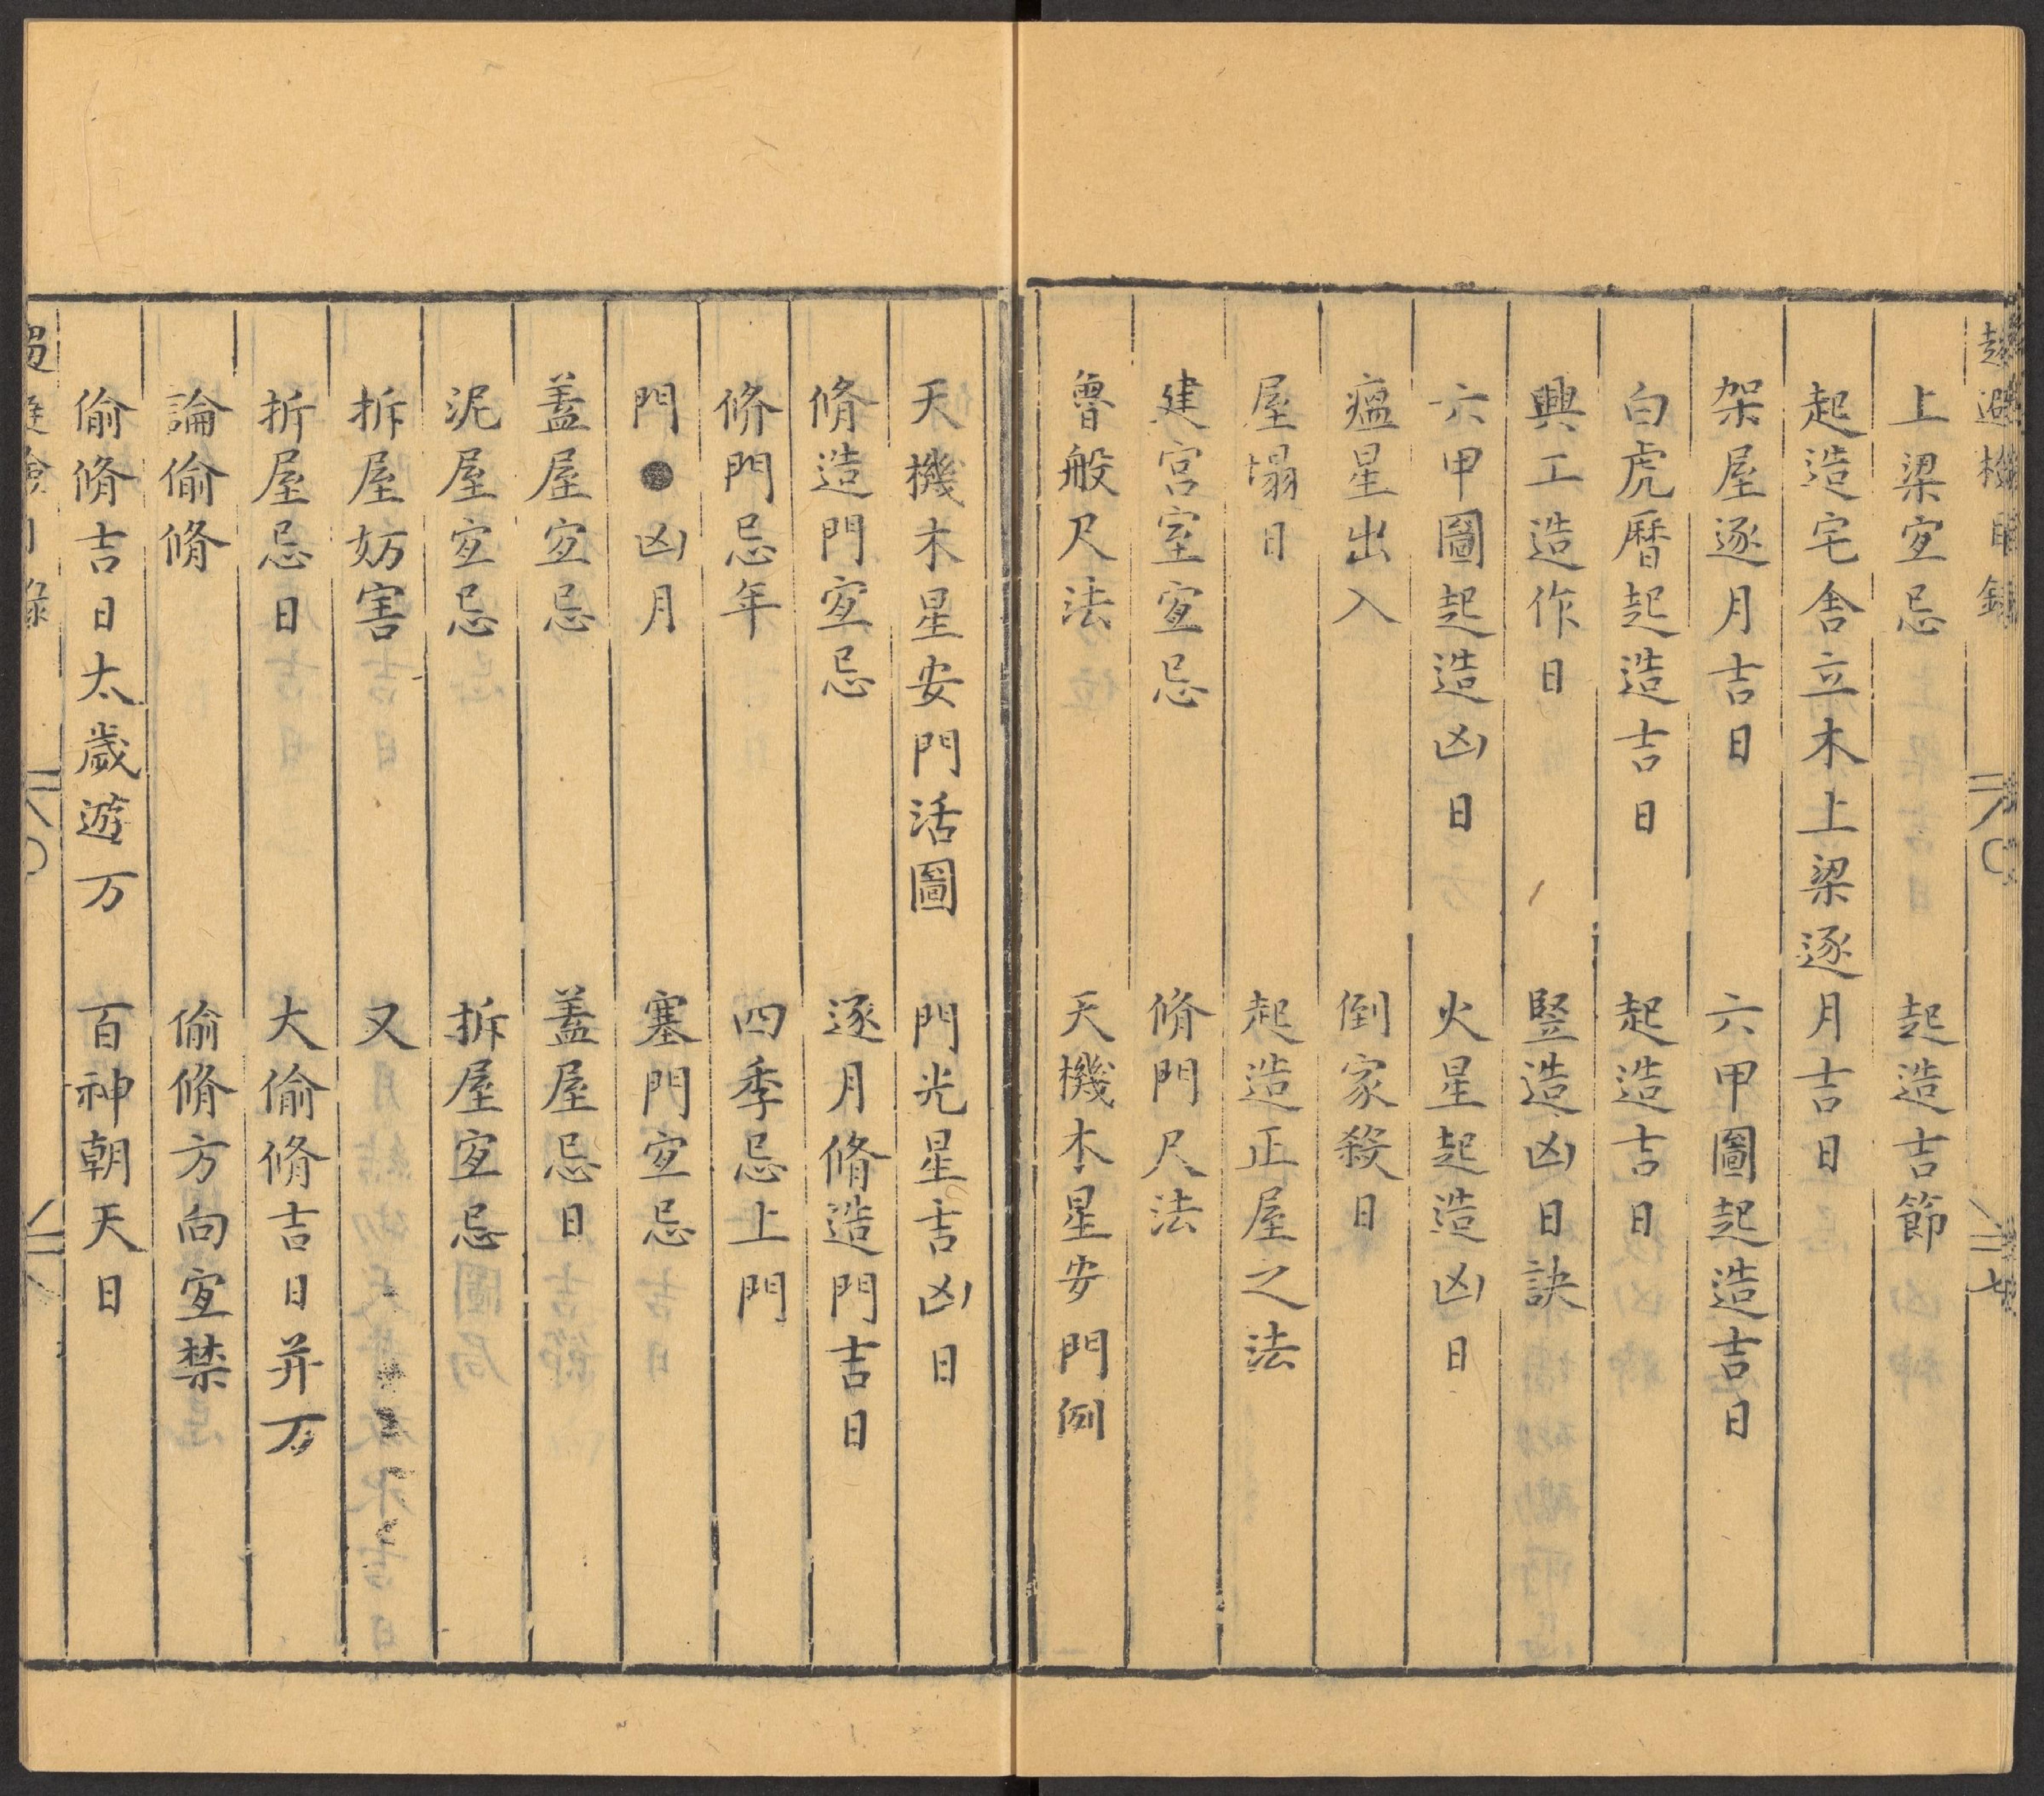 上梁宜忌　起造吉節
起造宅舍立木上梁逐月吉日
架屋逐月吉日　六甲圖起造吉日
白虎曆起造吉日　起造吉日
興工造作日　竪造凶日訣
六甲圖起造凶日　火星起造凶日
瘟星出入　倒家殺日
屋塌日　起造正屋之法
建宮室宜忌　脩門尺法
魯般尺法　天機木星安門例
天機木星安門活圖　門光星吉凶日
脩造門宜忌　逐月脩造門吉日
脩門忌年　四季忌上門
門●凶月　塞門宜忌
蓋屋宜忌　蓋屋忌日
泥屋宜忌　拆屋宜忌
拆屋妨害　又
折屋忌日　大偷脩吉日并万
論偷脩　偷脩方向宜禁
偷脩吉日太歲遊万　百神朝天日